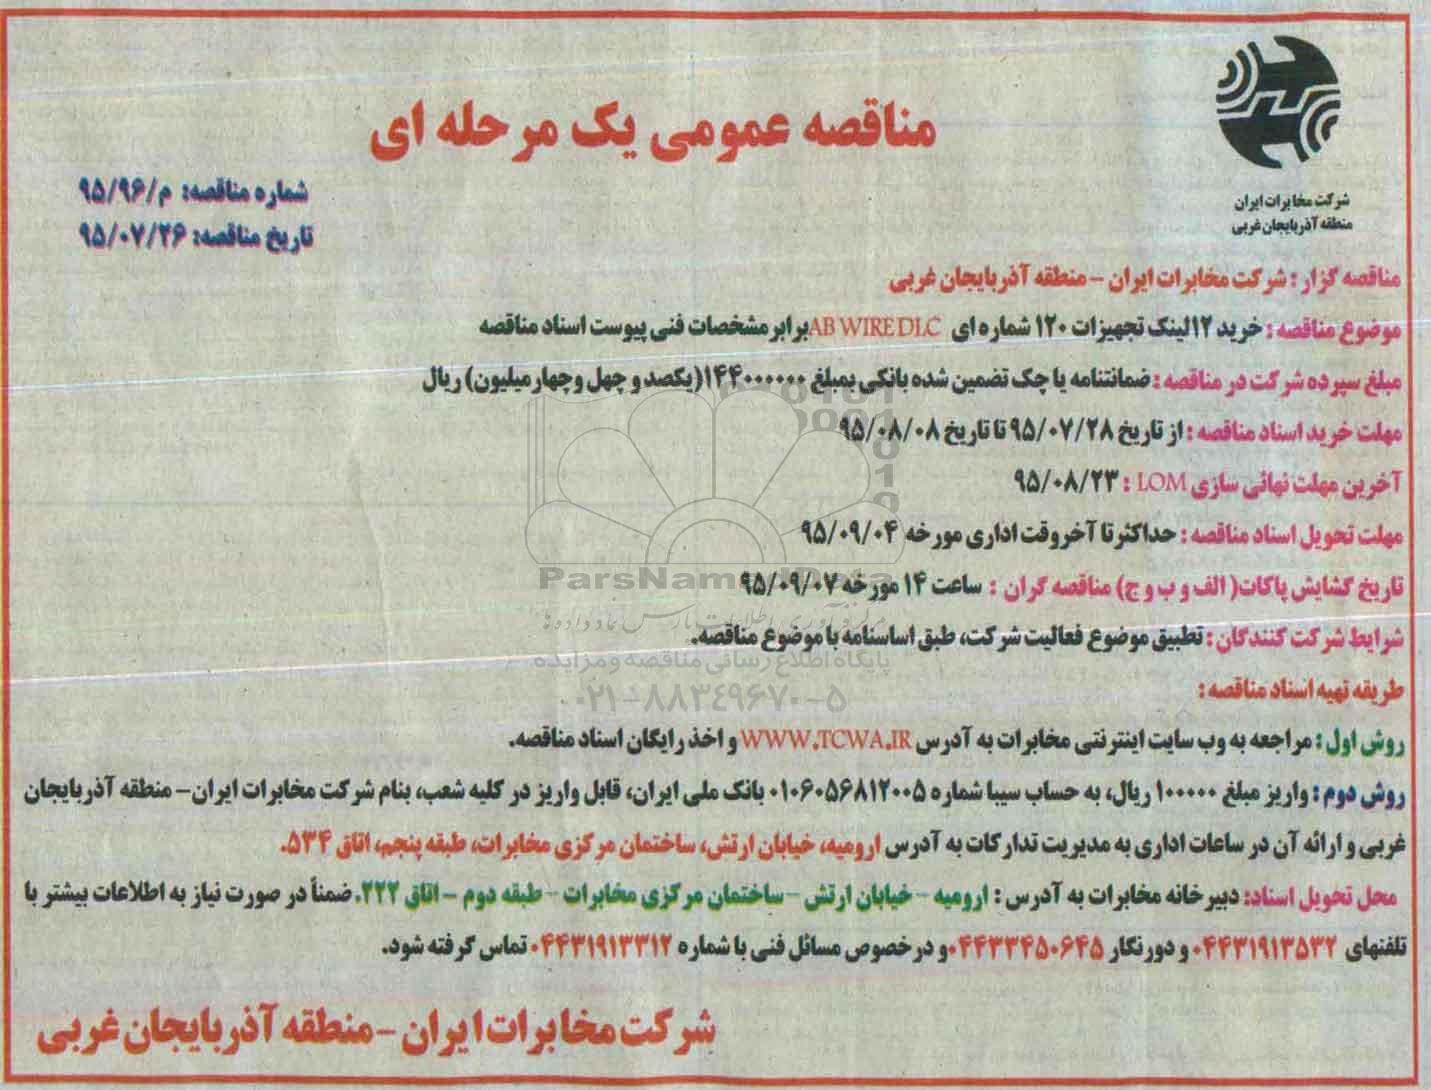 شرکت مخابرات ایران
منطقه آذربایجان غربی
مناقصه عمومی یک مرحله ای
شماره مناقصه: م/۹۵/۹۶
تاریخ مناقصه: ۹۵/۰۷/۲۶
مناقصه گزار : شرکت مخابرات ایران - منطقه آذربایجان غربی
موضوع مناقصه : خرید ۱۲لینک تجهیزات ۱۲۰ شماره ای AB WIRE DLC برابر مشخصات فنی پیوست اسناد مناقصه
مبلغ سپرده شرکت در مناقصه : ضمانتنامه یا چک تضمین شده بانکی بمبلغ ۱۴۴۰۰۰۰۰۰(یکصد و چهل وچهار میلیون) ریال
مهلت خرید اسناد مناقصه : از تاریخ ۹۵/۰۷/۲۸ تا تاریخ ۹۵/۰۸/۰۸
آخرین مهلت نهائی سازی LOM : ۹۵/۰۸/۲۳
مهلت تحویل اسناد مناقصه : حداکثر تا آخر وقت اداری مورخه ۹۵/۰۹/۰۴
تاریخ گشایش پاکات( الف و ب و ج) مناقصه گران : ساعت ۱۴ مورخه ۹۵/۰۹/۰۷
شرایط شرکت کنندگان : تطبیق موضوع فعالیت شرکت، طبق اساسنامه با موضوع مناقصه.
طریقه تهیه اسناد مناقصه :
روش اول : مراجعه به وب سایت اینترنتی مخابرات به آدرس WWW.TCWA.IR و اخذ رایگان اسناد مناقصه.
روش دوم : واریز مبلغ ۱۰۰۰۰۰ ریال، به حساب سیبا شماره ۰۱۰۶۰۵۶۸۱۲۰۰۵ بانک ملی ایران، قابل واریز در کلیه شعب، بنام شرکت مخابرات ایران- منطقه آذربایجان
غربی و ارائه آن در ساعات اداری به مدیریت تدارکات به آدرس ارومیه، خیابان ارتش، ساختمان مرکزی مخابرات، طبقه پنجم، اتاق ۵۳۴.
محل تحویل اسناد: دبیرخانه مخابرات به آدرس : ارومیه - خیابان ارتش - ساختمان مرکزی مخابرات - طبقه دوم - اتاق ۲۲۲. ضمناً در صورت نیاز به اطلاعات بیشتر با
تلفنهای ۰۴۴۳۱۹۱۳۵۳۲ و دورنگار ۰۴۴۳۳۴۵۰۶۴۵و در خصوص مسائل فنی با شماره ۰۴۴۳۱۹۱۳۳۱۲ تماس گرفته شود.
شرکت مخابرات ایران - منطقه آذربایجان غربی
ParsNamadData
پایگاه اطلاع رسانی مناقصه و مزایده
۰۲۱-۸۸۳۴۹۶۷۰-۵